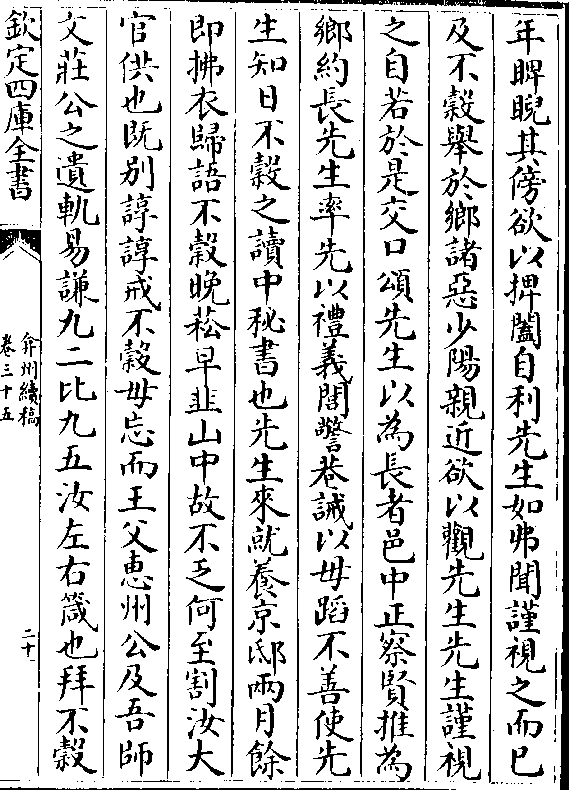 年睥睨其傍欲以捭闔自利先生如弗聞謹視之而已
及不穀舉於鄉諸惡少陽親近欲以觀先生先生謹視
之自若於是交口頌先生以為長者邑中正察賢推為
鄉約長先生率先以禮義閭警巷誡以毋蹈不善使先
生知日不穀之讀中秘書也先生來就養京邸兩月餘
即拂衣歸語不穀晚菘早韭山中故不乏何至割汝大
官供也既别諄諄戒不穀毋忘而王父惠州公及吾師
文莊公之遺軌易謙九二比九五汝左右箴也拜不穀
欽定四庫全書
弇州續稿
卷三十五
二十